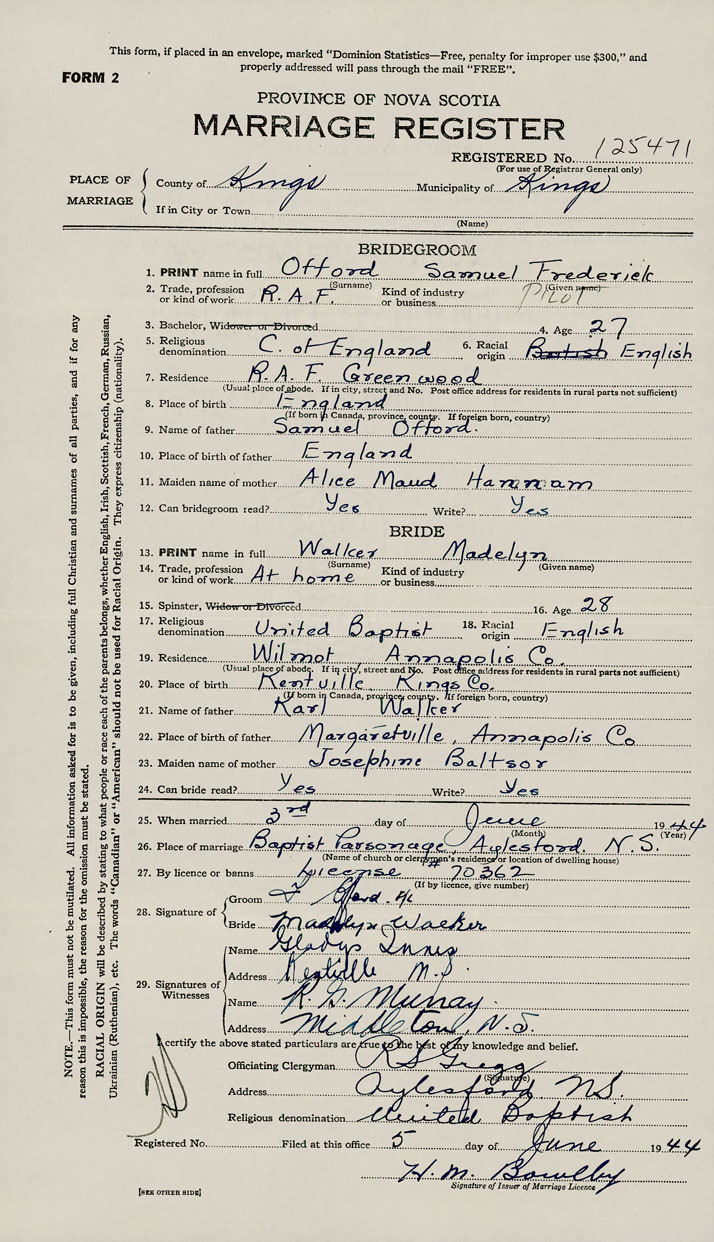 This form, if placed in an envelope, marked "Dominion Statistics—Free, penalty for improper use $300," and
properly addressed will pass through the mail "FREE".
FORM 2
PROVINCE OF NOVA SCOTIA
MARRIAGE REGISTER
REGISTERED No. 125471
(For use of Registrar General only)
PLACE OF MARRIAGE
County of Kings Municipality of Kings
If in City or Town
(Name)
BRIDEGROOM
1. PRINT name in full Offord Samuel Frederick
(Surname) (Given name)
2. Trade, profession or kind of work R.A.F. Kind of industry or business Pilot
3. Bachelor, Widower or Divorced 4. Age 27
5. Religious denomination C. of England 6. Racial origin British English
7. Residence R.A.F. Greenwood
(Usual place of abode. If in city, street and No. Post office address for residents in rural parts not sufficient)
8. Place of birth England
(If born in Canada, province, county. If foreign born, country)
9. Name of father Samuel Offord.
10. Place of birth of father England
11. Maiden name of mother Alice Maud Hannam
12. Can bridegroom read? Yes Write? Yes
BRIDE
13. PRINT name in full Walker Madelyn
(Surname) (Given name)
14. Trade, profession or kind of work At home Kind of industry or business
15. Spinster, Widow or Divorced 16. Age 28
17. Religious denomination United Baptist 18. Racial origin English
19. Residence Wilmot Annapolis Co.
(Usual place of abode. If in city, street and No. Post office address for residents in rural parts not sufficient)
20. Place of birth Kentville Kings Co.
(If born in Canada, province, county. If foreign born, country)
21. Name of father Karl Walker
22. Place of birth of father Margaretville, Annapolis Co
23. Maiden name of mother Josephine Baltsor
24. Can bride read? Yes Write? Yes
25. When married 3rd day of June 1944
(Month) (Year)
26. Place of marriage Baptist Parsonage, Aylesford. N.S.
(Name of church or clergyman's residence or location of dwelling house)
27. By licence or banns License # 70362
(If by licence, give number)
28. Signature of
Groom Offord. F/L
Bride Madelyn Walker
29. Signatures of Witnesses
Name Gladys Innis
Address Kentville N.S.
Name R. G. Murray.
Address Middleton, N.S.
I certify the above stated particulars are true to the best of my knowledge and belief.
Officiating Clergyman R S Gregg
(Signature)
Address Aylesford NS.
Religious denomination United Baptist
Registered No. Filed at this office 5 day of June 1944
H. M. Bowlby
Signature of Issuer of Marriage Licence
[SEE OTHER SIDE]
NOTE.—This form must not be mutilated. All information asked for is to be given, including full Christian and surnames of all parties, and if for any
reason this is impossible, the reason for the omission must be stated.
RACIAL ORIGIN will be described by stating to what people or race each of the parents belongs, whether English, Irish, Scottish, French, German, Russian,
Ukrainian (Ruthenian), etc. The words "Canadian" or "American" should not be used for Racial Origin. They express citizenship (nationality).